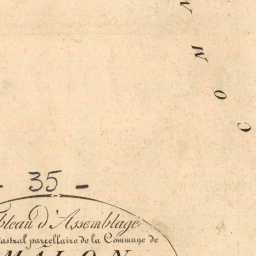 COM
- 35 -
bleau d'Assemblage
astral parcellaire de la Commune de